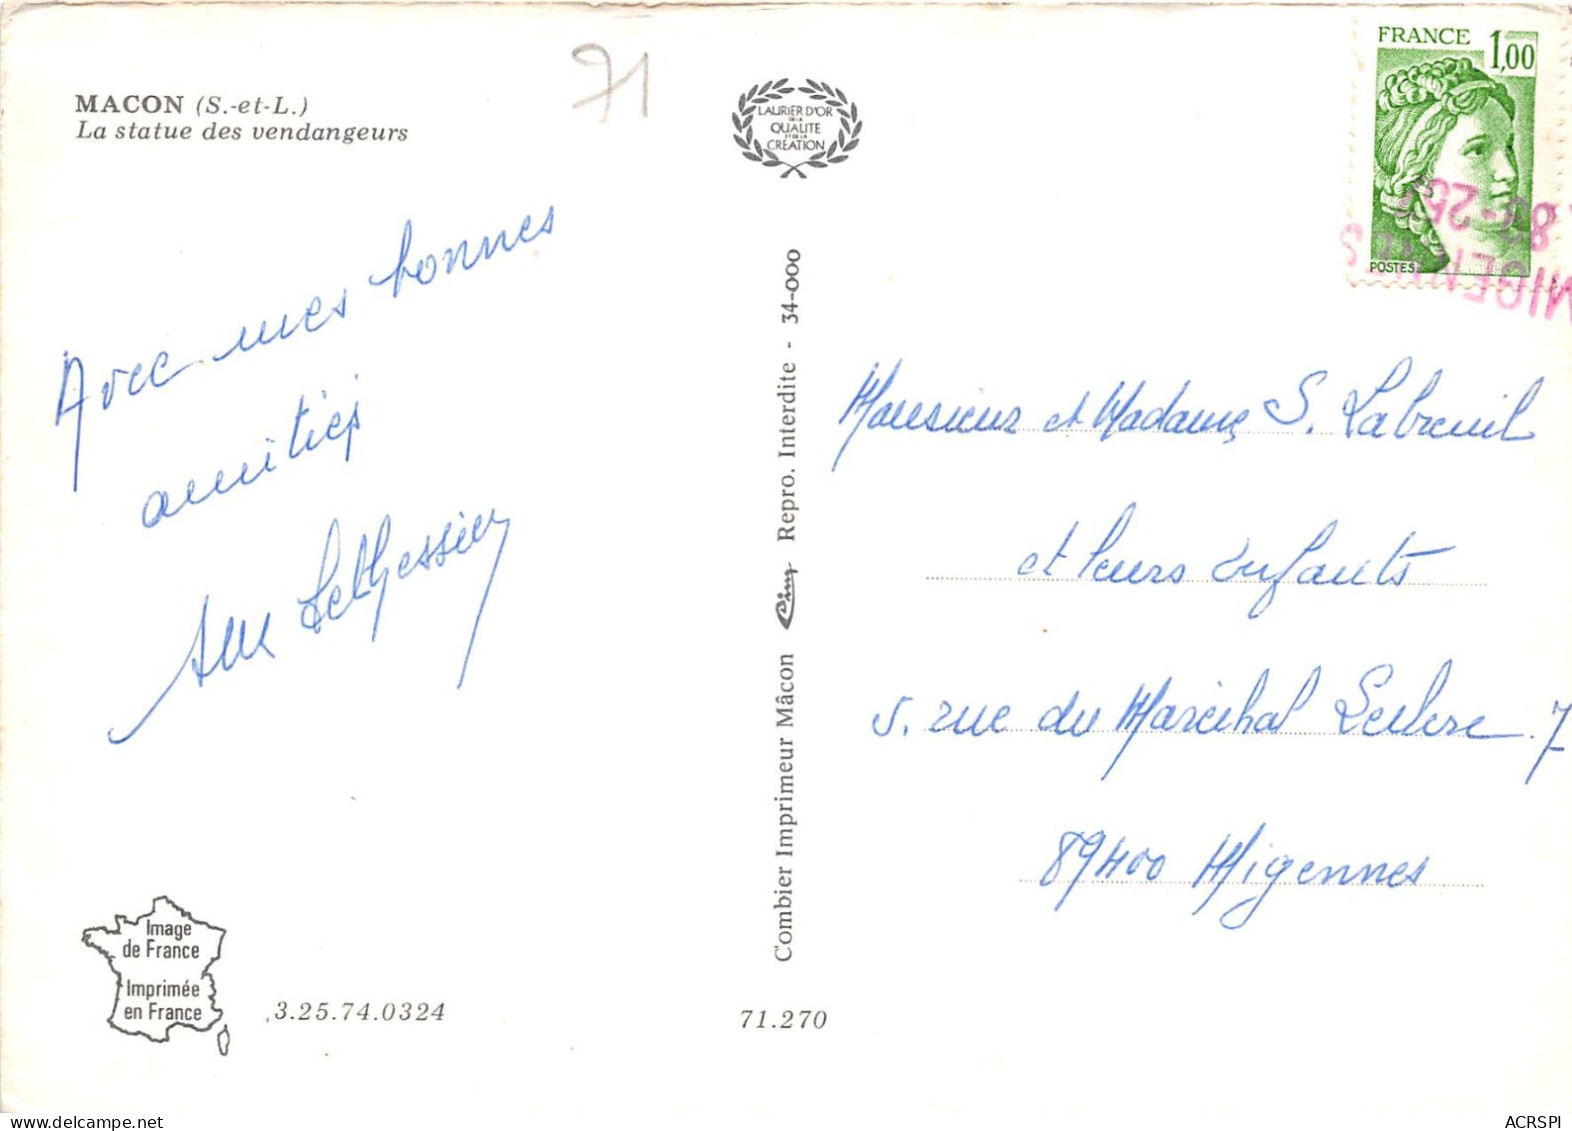 MACON (S.-et-L.)
La statue des vendangeurs
71
LAURIER D'OR
DE LA
QUALITE
ET DE LA
CREATION
FRANCE 1,00
POSTES
MIGENNES
Avec mes bonnes
amitiés
Monsieur et Madame S. Labreuil
et leurs enfants
5. rue du Maréchal Leclerc. 7
89400 Migennes
Combier Imprimeur Mâcon Cim Repro. Interdite - 34-000
Image
de France
Imprimée
en France
3.25.74.0324
71.270
ACRSPI